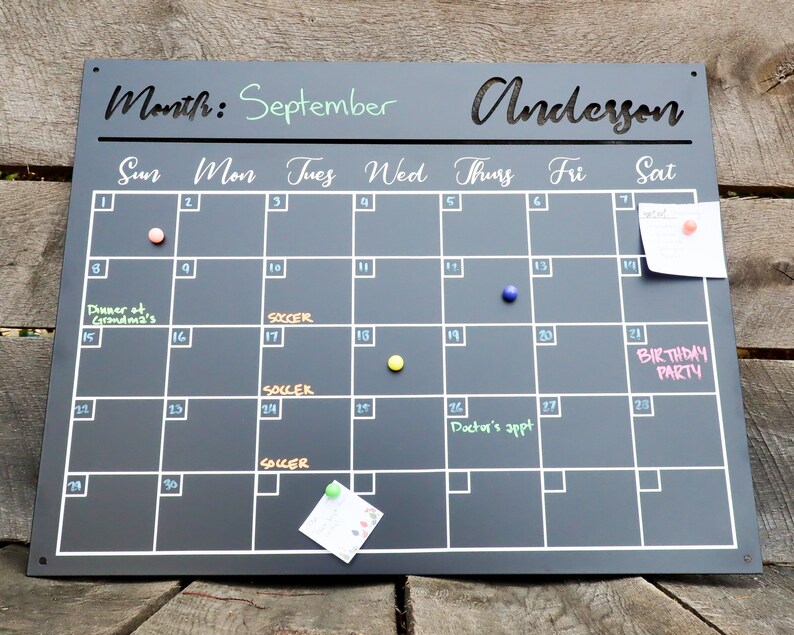 Month: September Anderson
Sun Mon Tues Wed Thurs Fri Sat
1 2 3 4 5 6 7
8 9 10 11 12 13 14
Dinner at
Grandma's
SOCCER
15 16 17 18 19 20 21
BIRTHDAY
PARTY
SOCCER
22 23 24 25 26 27 28
Doctor's appt
SOCCER
29 30